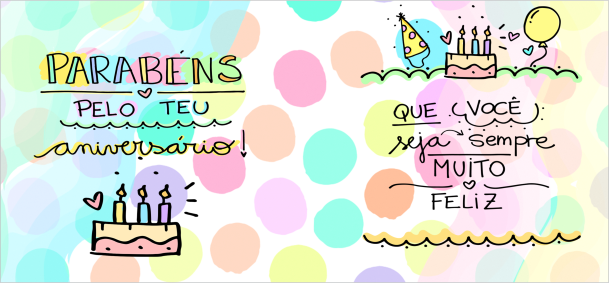 PARABÉNS
PELO TEU
aniversário!
QUE (VOCÊ):
seja sempre
MUITO
FELIZ